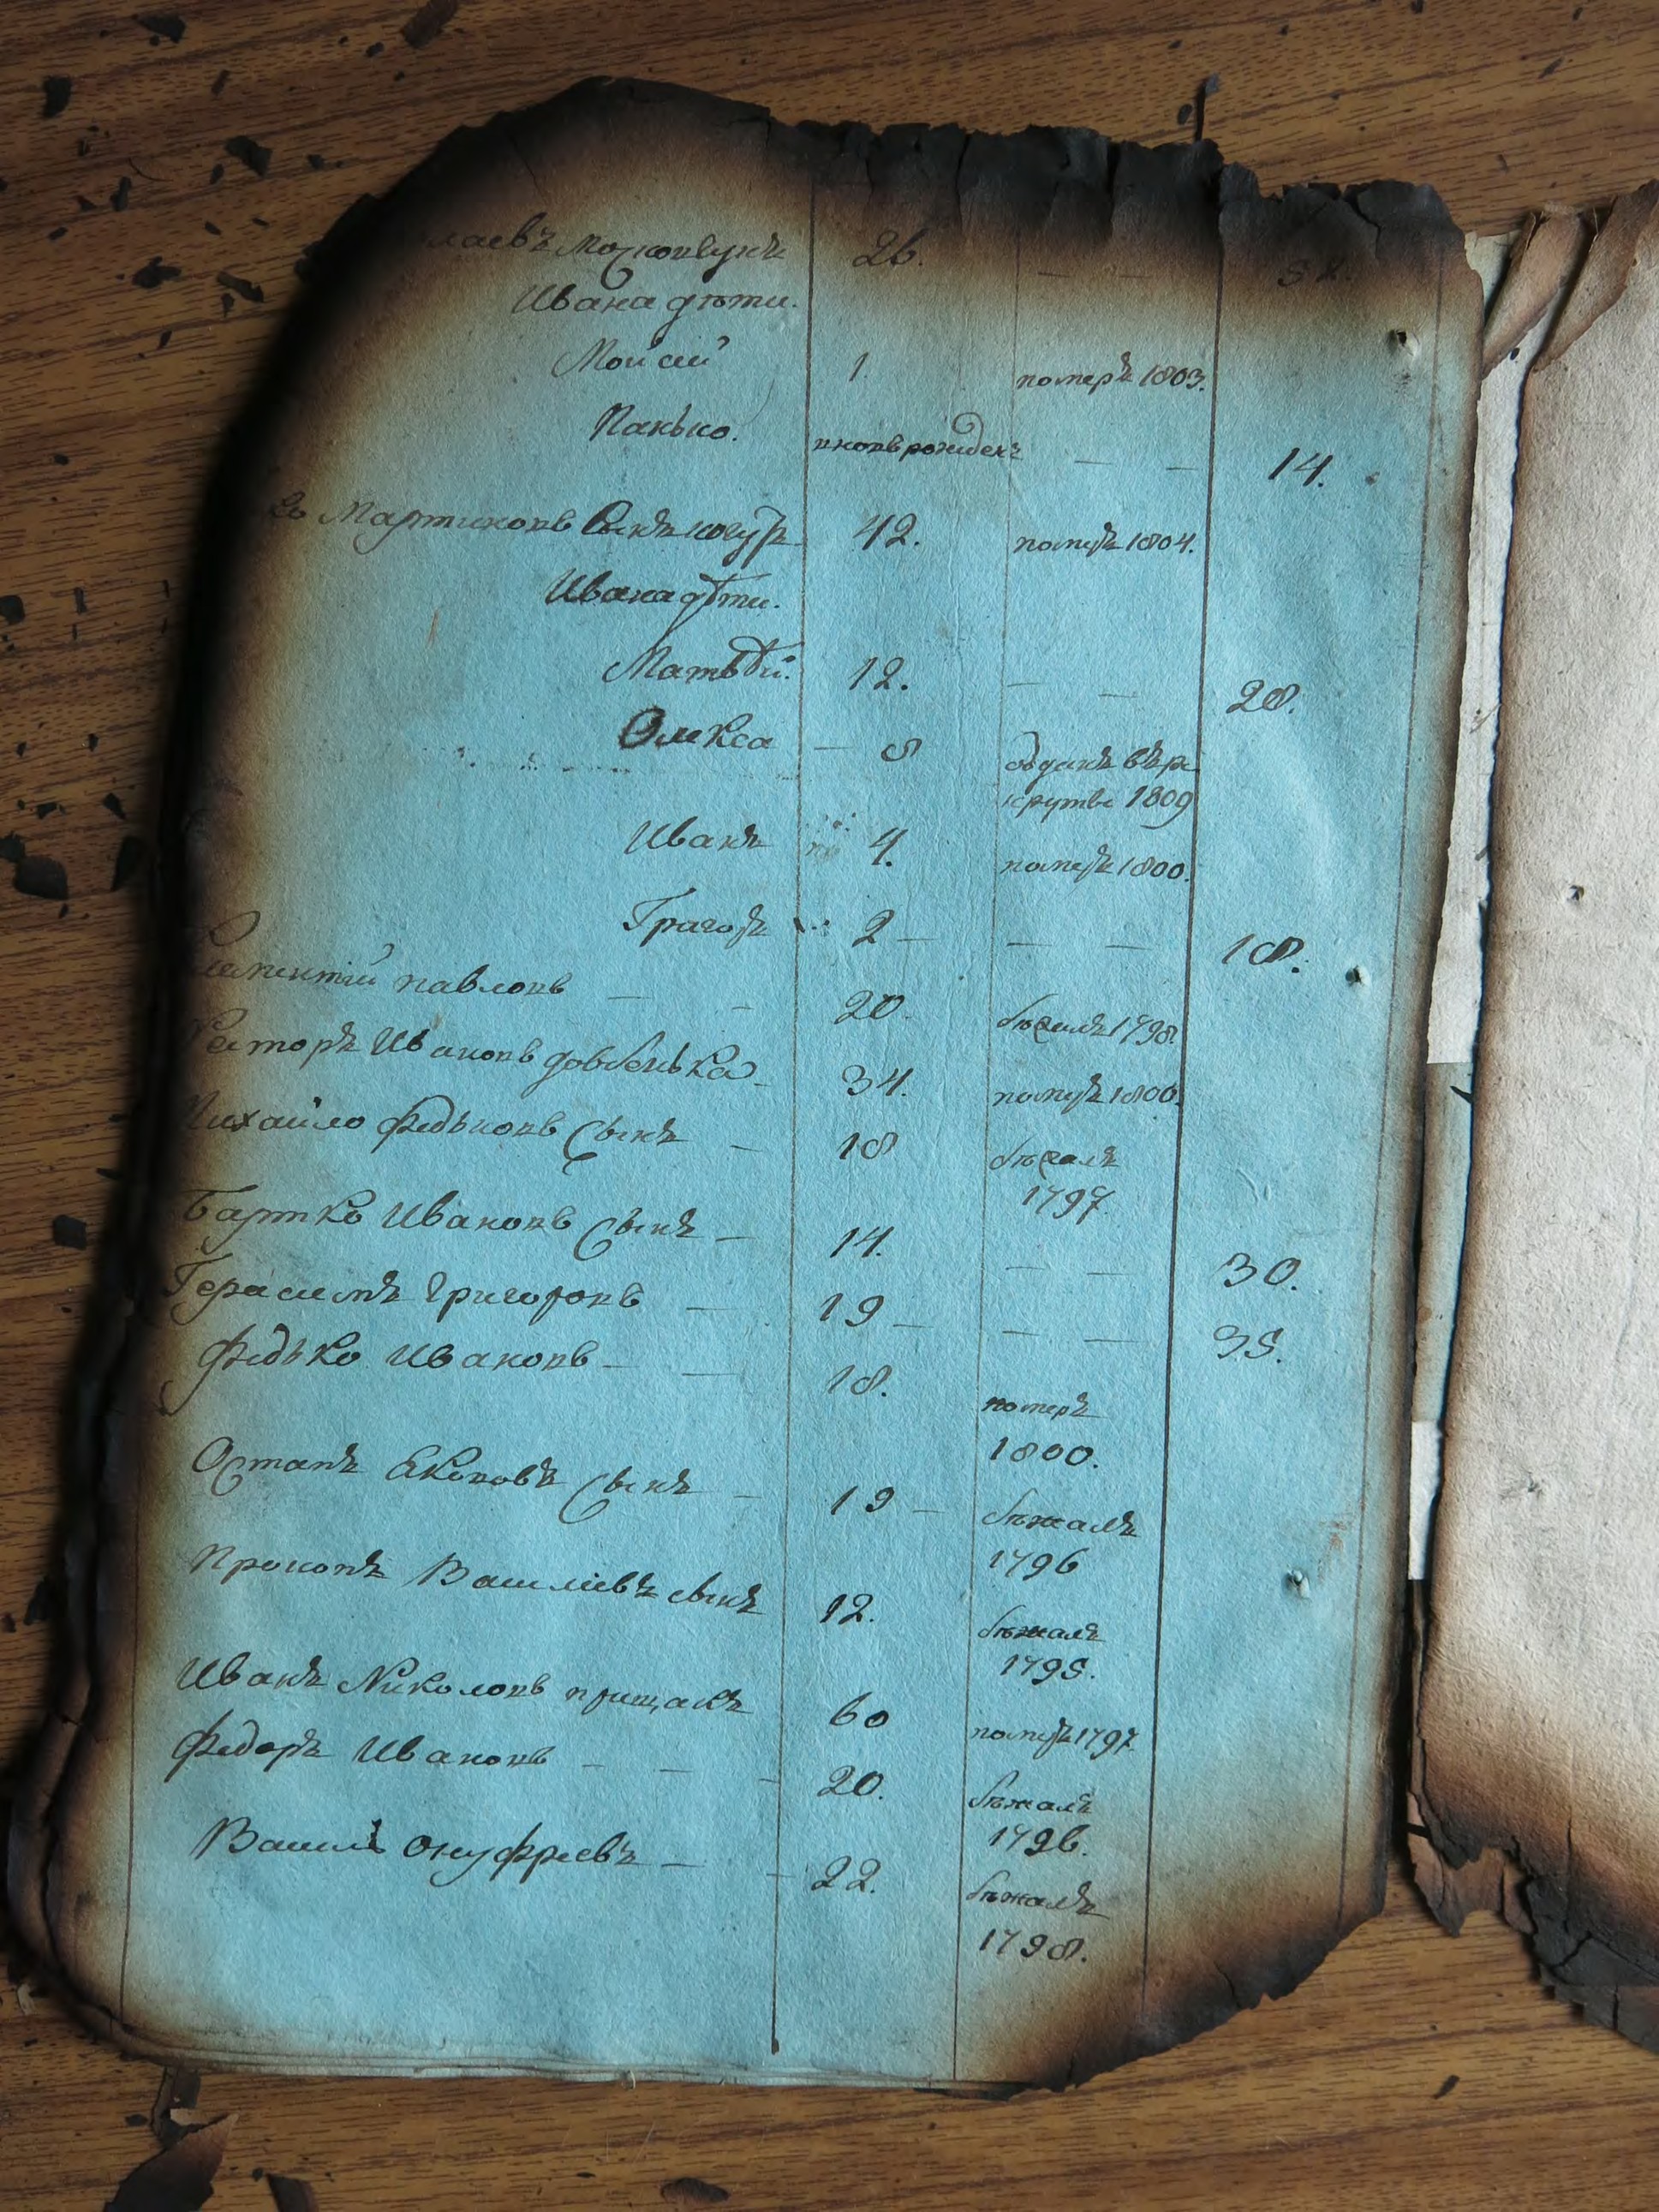 лаевъ 26.
Ивана дѣти.
Мойсей 1. померъ 1803.
Панько. вновьрожден — — 14.
Мартиновъ Сынъ 42. померъ 1804.
Ивана дѣти.
Матвѣй. 12. — — 28.
Олекса — 8 отданъ въ ре
круты 1809
Иванъ 4. померъ 1800.
Григоръ 2 — — — 18.
павловъ — — 20. бежалъ 1798.
Ивановъ довбенька — 34. померъ 1800.
Михайло Федьковъ Сынъ — 18 бежалъ
1797.
Бартко Ивановъ Сынъ — 14. — — 30.
Герасимъ Григоровъ — 19 — — — 35.
Федько Ивановъ — — 18. померъ
1800.
Остапъ Сынъ — 19 — бѣжалъ
1796
Прокопъ Василіевъ сынъ 12. бѣжалъ
1795.
Иванъ Николовъ прищакъ 60 померъ 1797.
Федоръ Ивановъ — — — 20. бѣжалъ
1796.
Василь Онуфреевъ — — 22. бѣжалъ
1798.